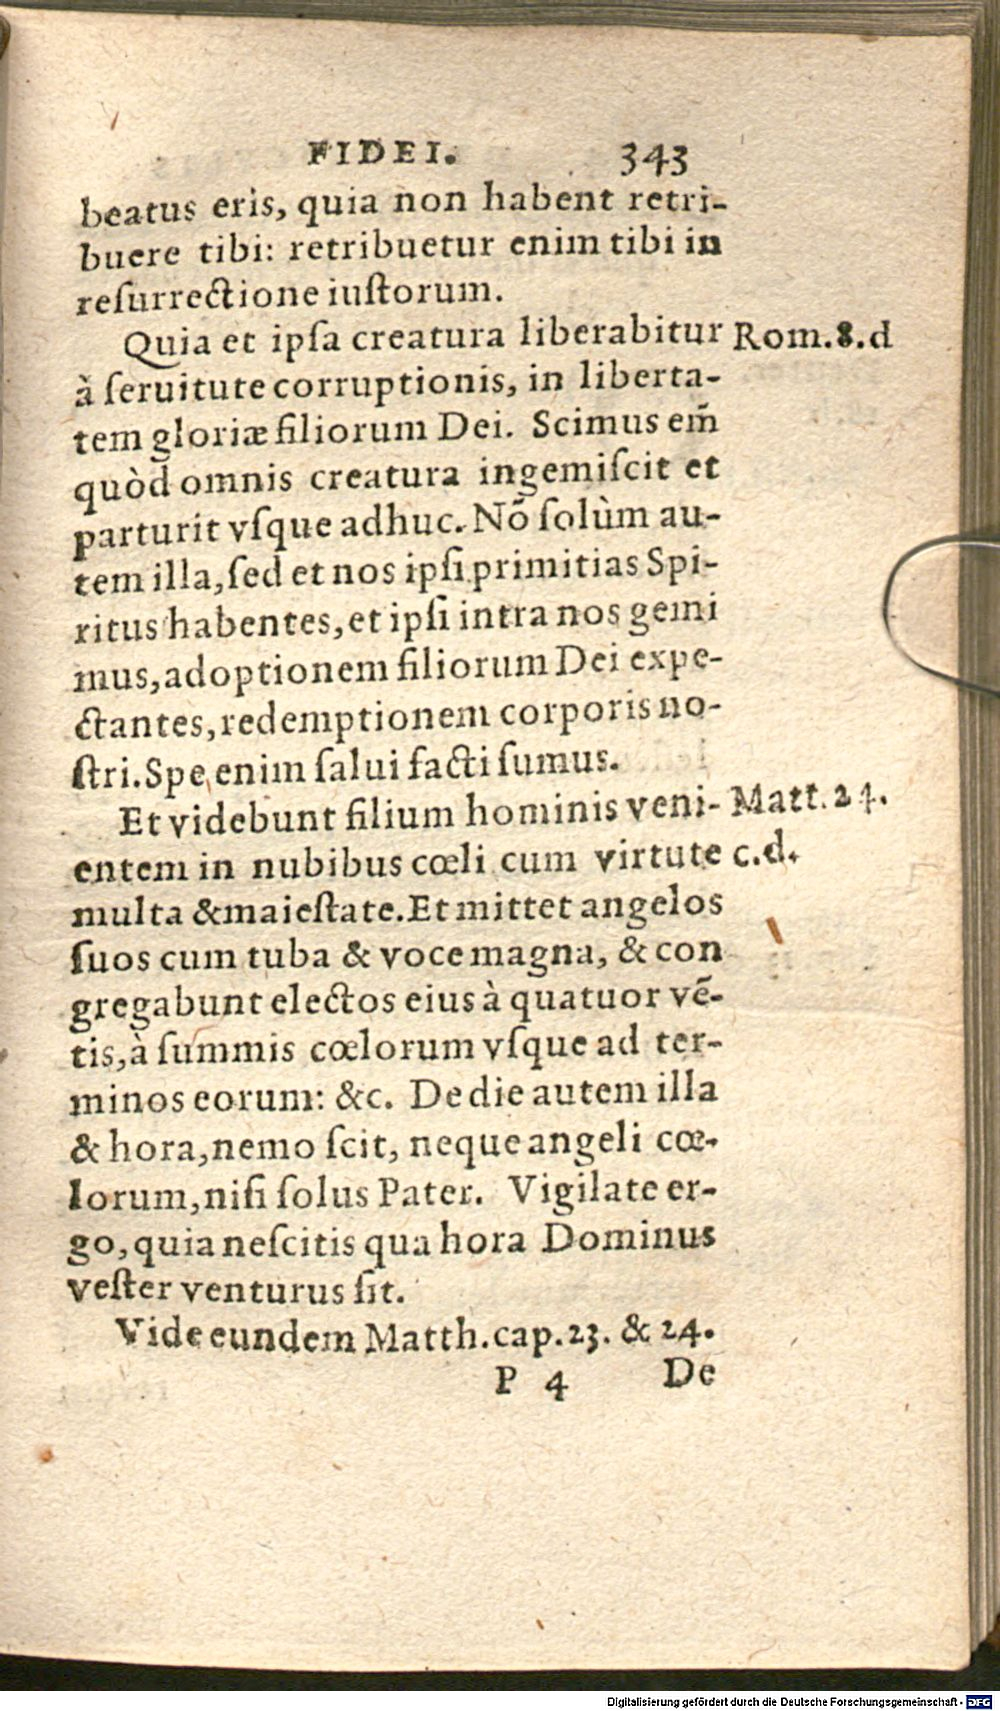 FIDEI. 343
beatus eris, quia non habent retri-
buere tibi: retribuetur enim tibi in
reſurrectione iuſtorum.
Quia et ipſa creatura liberabitur Rom.8.d
à ſeruitute corruptionis, in liberta-
tem gloriæ filiorum Dei. Scimus em̃
quòd omnis creatura ingemiſcit et
parturit vſque adhuc. Nõ ſolùm au-
tem illa, ſed et nos ipſi primitias Spi-
ritus habentes, et ipſi intra nos gemi
mus, adoptionem filiorum Dei expe-
ctantes, redemptionem corporis no-
ſtri. Spe enim ſalui facti ſumus.
Et videbunt filium hominis veni- Matt. 24.
entem in nubibus cœli cum virtute c.d.
multa & maieſtate. Et mittet angelos
ſuos cum tuba & voce magna, & con
gregabunt electos eius à quatuor vẽ-
tis, à ſummis cœlorum vſque ad ter-
minos eorum: &c. De die autem illa
& hora, nemo ſcit, neque angeli cœ-
lorum, niſi ſolus Pater. Vigilate er-
go, quia neſcitis qua hora Dominus
veſter venturus ſit.
Vide eundem Matth. cap. 23. & 24.
P 4 De
Digitalisierung gefördert durch die Deutsche Forschungsgemeinschaft - DFG